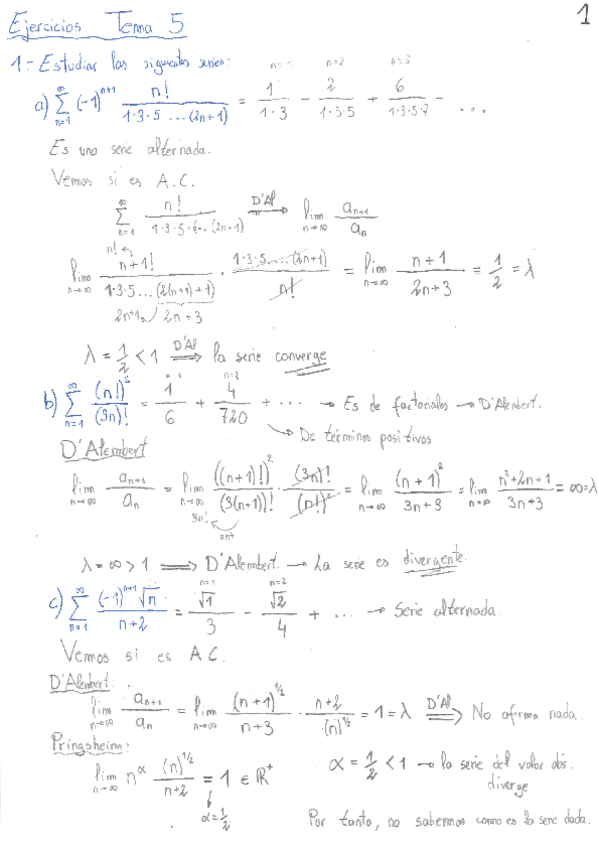 Ejercicios Tema 5
1
1.- Estudiar las siguientes series:
n=1 n=2 n=3
a) ∑_{n=1}^{∞} (-1)^{n+1} n!/(1·3·5 ... (2n+1)) = 1/(1·3) - 2/(1·3·5) + 6/(1·3·5·7) - ...
Es una serie alternada.
Vemos si es A.C.
∑_{n=1}^{∞} n!/(1·3·5· ... (2n+1)) ⟹ D'Al lim_{n→∞} a_{n+1}/a_n
n!
lim_{n→∞} n+1!/(1·3·5 ... (2(n+1)+1)) · 1·3·5 ... (2n+1)/n! = lim_{n→∞} (n+1)/(2n+3) = 1/2 = λ
2n+1 2n+3
λ = 1/2 < 1 ⟹ D'Al la serie converge
b) ∑_{n=1}^{∞} (n!)²/(3n)! = 1/6 + 4/720 + ... → Es de factoriales → D'Alembert.
n=2
→ De términos positivos
D'Alembert
lim_{n→∞} a_{n+1}/a_n = lim_{n→∞} ((n+1)!)²/(3(n+1))! · (3n)!/(n!)² = lim_{n→∞} (n+1)²/(3n+3) = lim_{n→∞} (n²+2n+1)/(3n+3) = ∞ = λ
3n!
λ = ∞ > 1 ⟹ D'Alembert. → La serie es divergente.
n=1 n=2
c) ∑_{n=1}^{∞} (-1)^{n+1} √n/(n+2) = √1/3 - √2/4 + ... → Serie alternada
Vemos si es A.C.
D'Alembert:
lim_{n→∞} a_{n+1}/a_n = lim_{n→∞} (n+1)^{1/2}/(n+3) · (n+2)/(n)^{1/2} = 1 = λ ⟹ D'Al No afirma nada.
Pringsheim:
lim_{n→∞} n^α (n)^{1/2}/(n+2) = 1 ∈ ℝ⁺ α = 1/2 < 1 → la serie del valor abs. diverge
α = 1/2
Por tanto, no sabemos como es la serie dada.